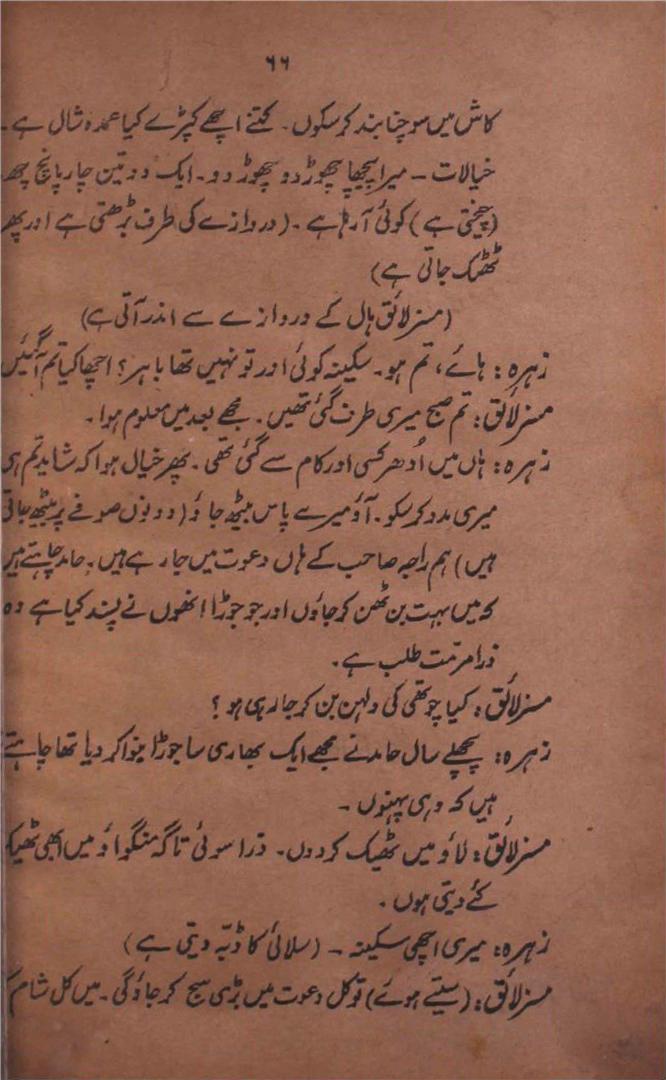 ۶۶
کاش میں سوچنا بند کر سکوں۔ کتنے اچھے کپڑے کیا عمدہ شال ہے۔
خیالات ۔ میرا پیچھا چھوڑ دو چھوڑ دو۔ ایک دو تین چار پانچ چھ
(چیختی ہے) کوئی آ رہا ہے۔ (دروازے کی طرف بڑھتی ہے اور پھر
ٹھٹھک جاتی ہے)
(مسز لائق ہال کے دروازے سے اندر آتی ہے)
زہرہ: ہائے، تم ہو۔ سکینہ کوئی اور تو نہیں تھا باہر؟ اچھا کیا تم آگئیں
مسز لائق: تم صبح میری طرف گئی تھیں۔ مجھے بعد میں معلوم ہوا۔
زہرہ: ہاں میں اُدھر کسی اور کام سے گئی تھی۔ پھر خیال ہوا کہ شاید تم ہی
میری مدد کر سکو۔ آؤ میرے پاس بیٹھ جاؤ (دونوں صوفے پر بیٹھ جاتی
ہیں) ہم راجہ صاحب کے ہاں دعوت میں جا رہے ہیں۔ حامد چاہتے ہیں
کہ میں بہت بن ٹھن کر جاؤں اور جو جوڑا انھوں نے پسند کیا ہے وہ
ذرا مرمّت طلب ہے۔
مسز لائق: کیا چوتھی کی دلہن بن کر جا رہی ہو؟
زہرہ: پچھلے سال حامد نے مجھے ایک بھاری سا جوڑا بنوا کر دیا تھا چاہتے
ہیں کہ وہی پہنوں ۔
مسز لائق: لاؤ میں ٹھیک کر دوں۔ ذرا سوئی تاگہ منگواؤ میں ابھی ٹھیک
کئے دیتی ہوں۔
زہرہ: میری اچھی سکینہ ۔ (سلائی کا ڈبّہ دیتی ہے)
مسز لائق: (سیتے ہوئے) تو کل دعوت میں بڑی سج کر جاؤگی۔ میں کل شام